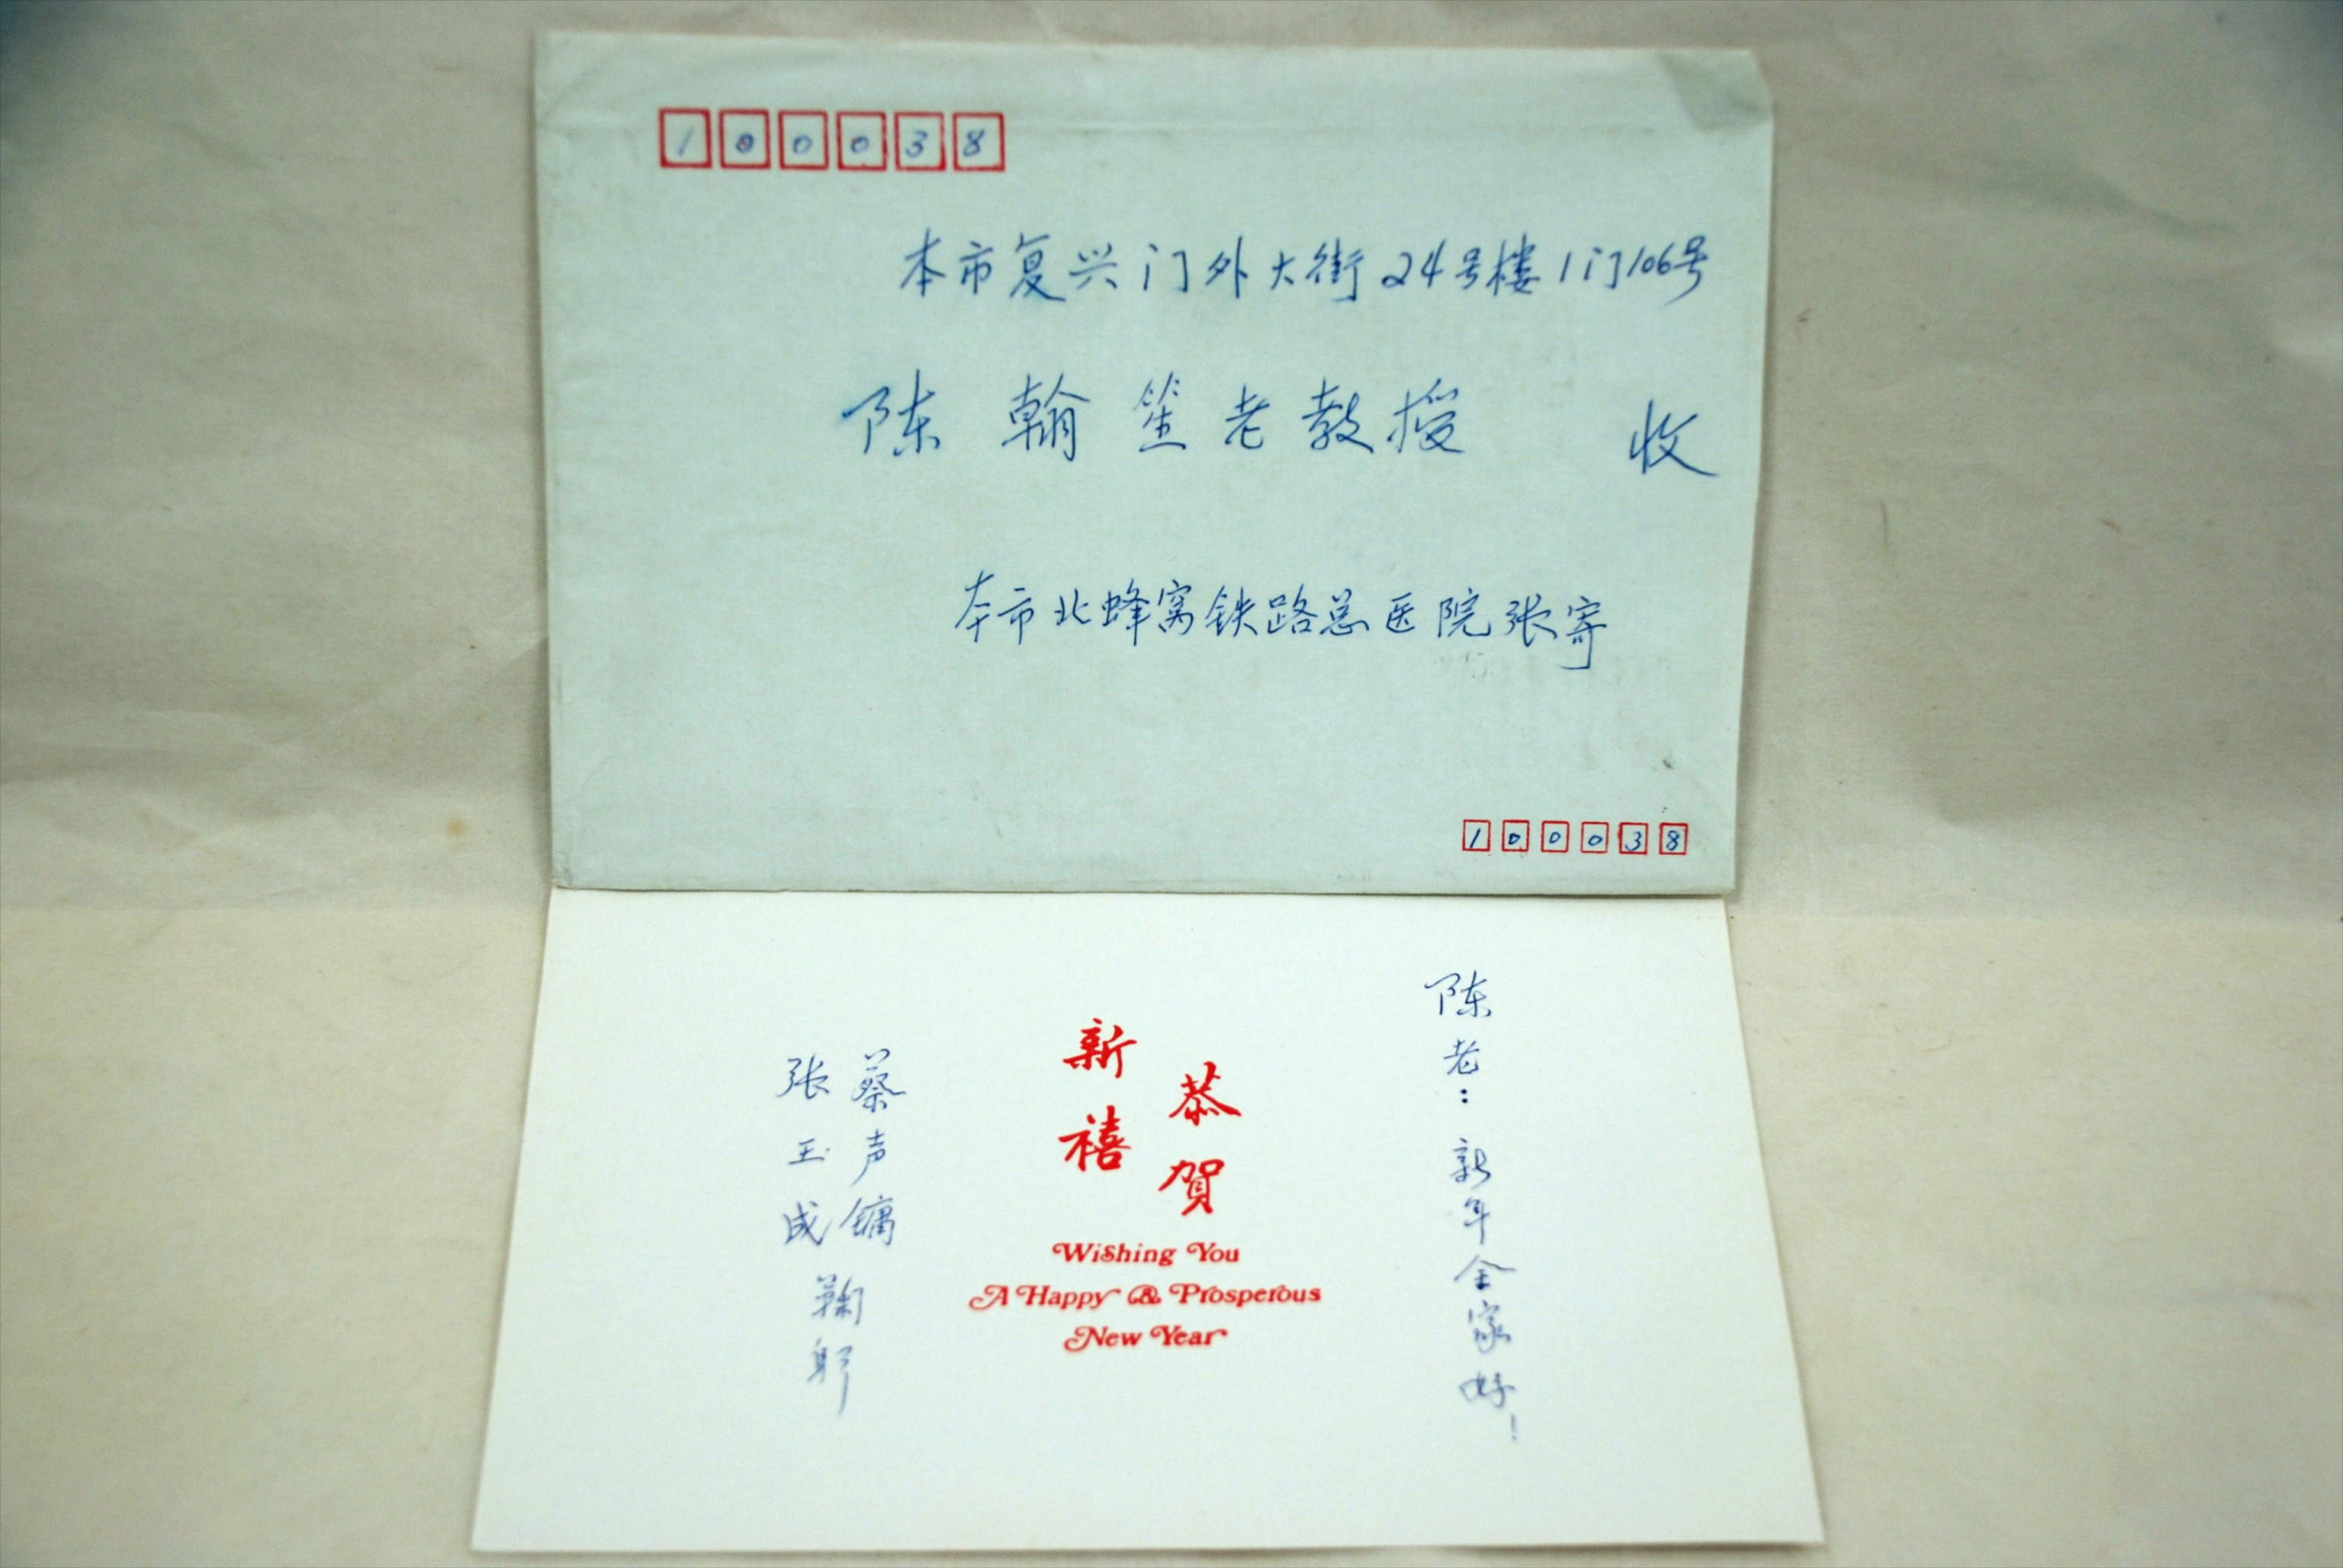 100038
本市复兴门外大街24号楼1门106号
陈翰笙老教授 收
本市北蜂窝铁路总医院张寄
100038
陈老：新年全家好！
恭贺
新禧
Wishing You
A Happy & Prosperous
New Year
蔡声镛
张玉成
鞠躬